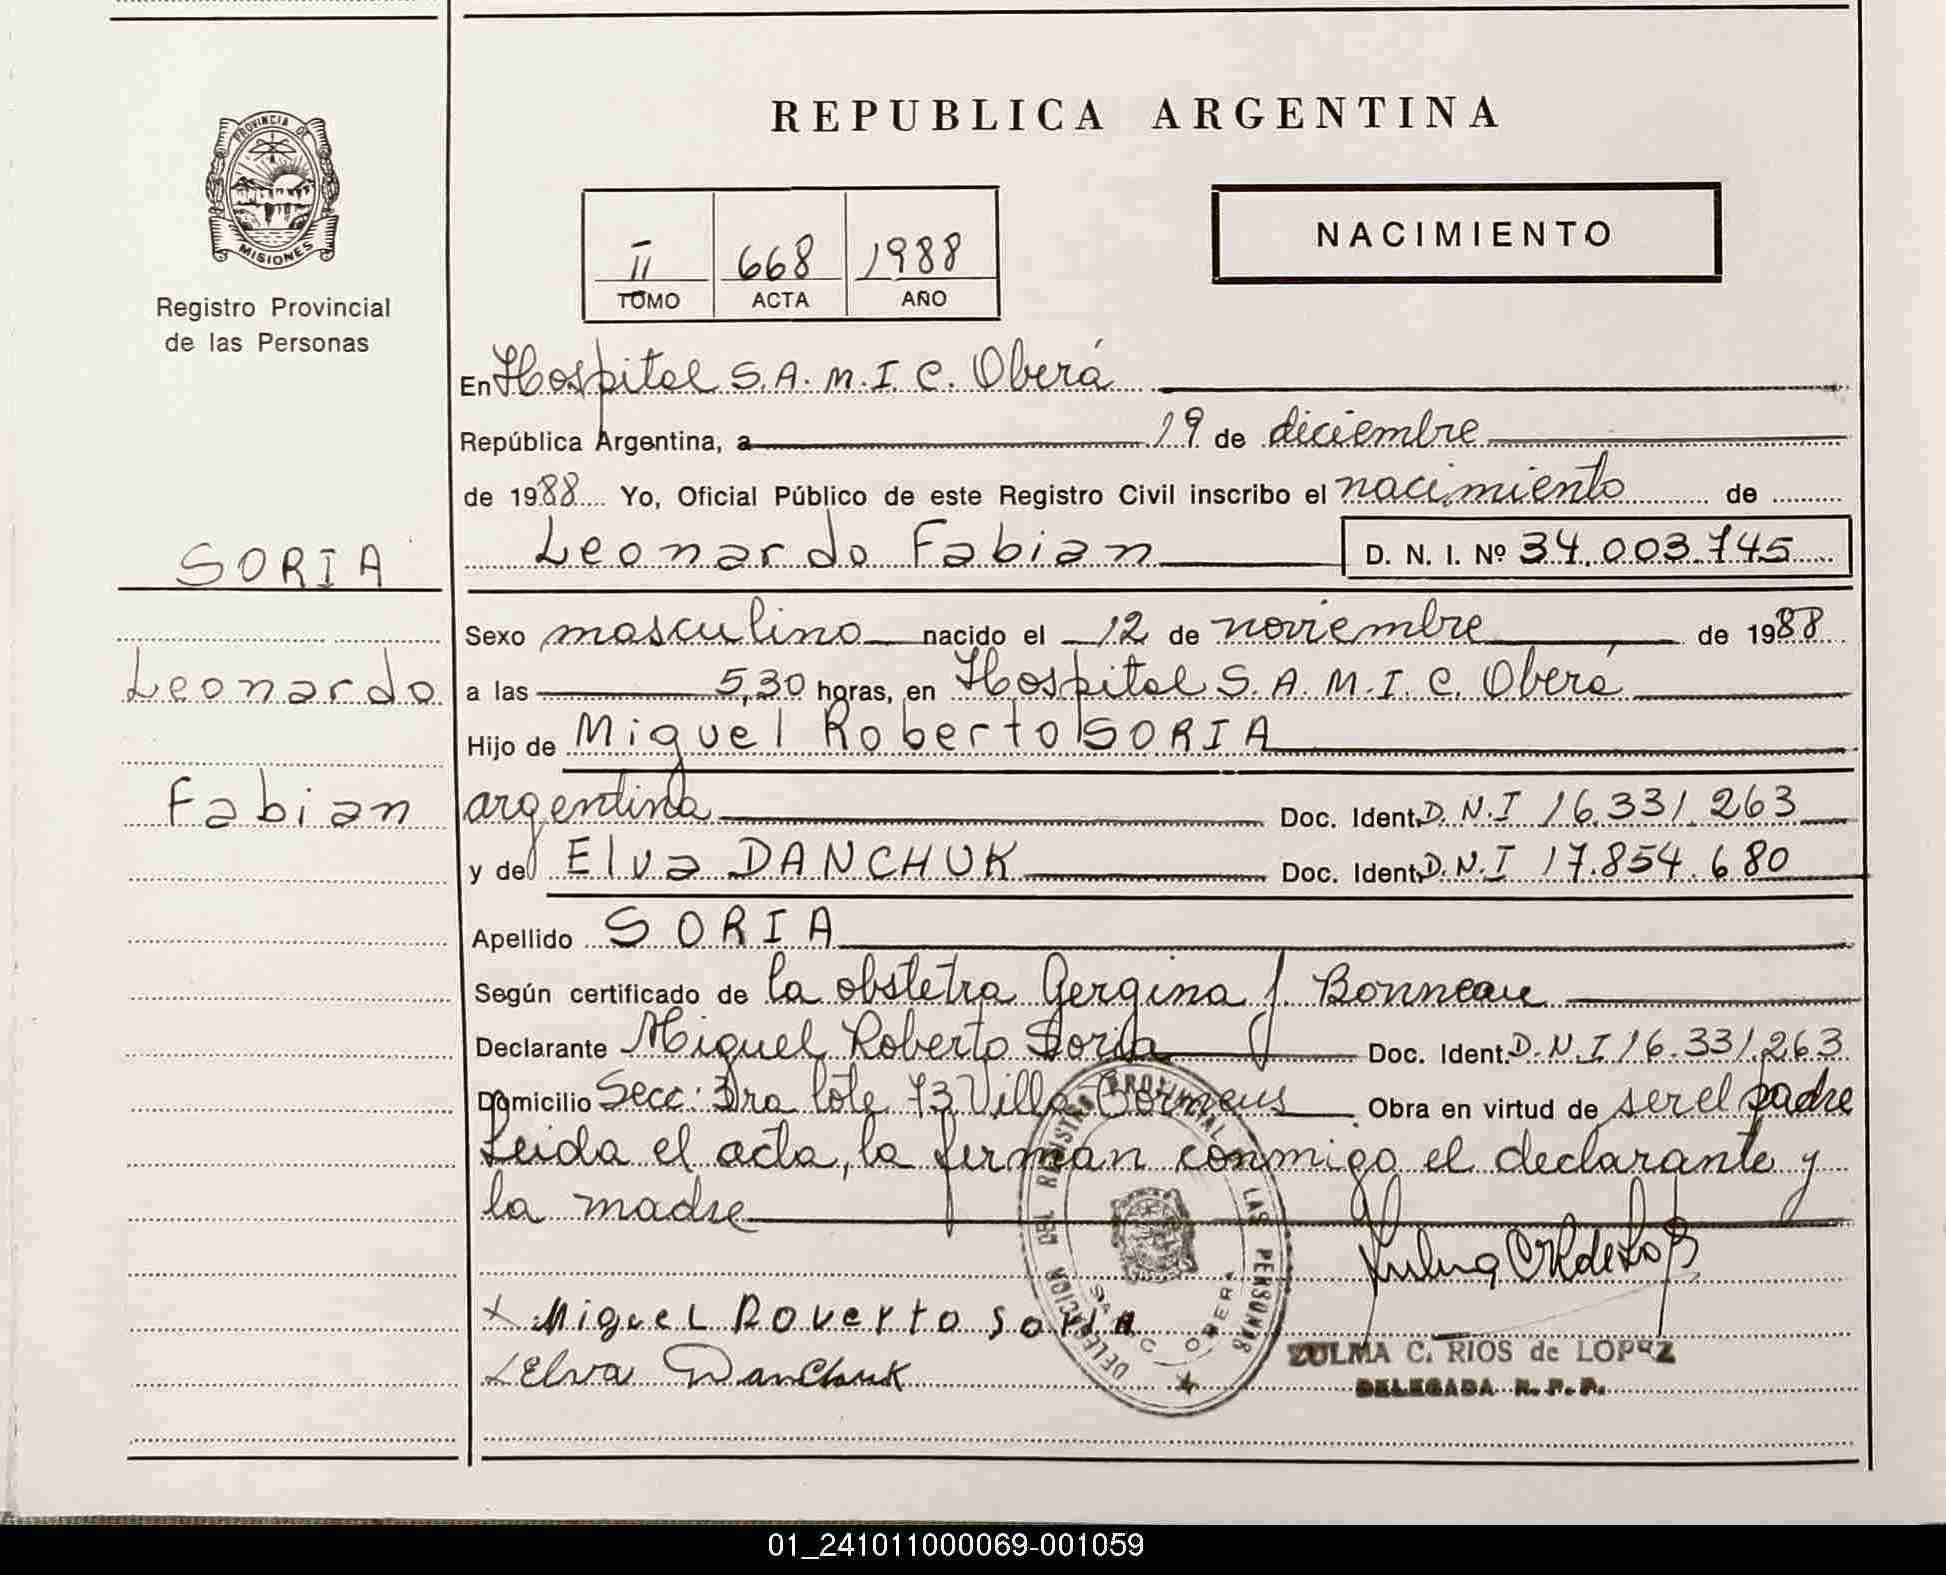 REPUBLICA ARGENTINA
PROVINCIA DE
MISIONES
Registro Provincial
de las Personas
NACIMIENTO
II 668 1988
TOMO ACTA AÑO
En Hospital S.A.M.I.C. Oberá
República Argentina, a 19 de diciembre
de 1988 Yo, Oficial Público de este Registro Civil inscribo el nacimiento de
SORIA
Leonardo Fabian D. N. I. Nº 34.003.745
Sexo masculino nacido el 12 de noviembre de 1988
Leonardo
a las 5,30 horas, en Hospital S.A.M.I.C. Oberá
Hijo de Miguel Roberto SORIA
Fabian
argentina Doc. Ident. D.N.I 16.331.263
y de Elva DANCHUK Doc. Ident. D.N.I 17.854.680
Apellido SORIA
Según certificado de la obstetra Gergina J. Bonneau
Declarante Miguel Roberto Soria Doc. Ident. D.N.I 16.331.263
Domicilio Secc: 3ra lote 73 Villa Obra en virtud de ser el padre
Leida el acta, la firman conmigo el declarante y
la madre
x Miguel Roverto Soria
Elva Danchuk
DELEGACION DEL REGISTRO PROVINCIAL DE LAS PERSONAS
OBERA
ZULMA C. RIOS de LOPEZ
DELEGADA R. P. P.
01_241011000069-001059